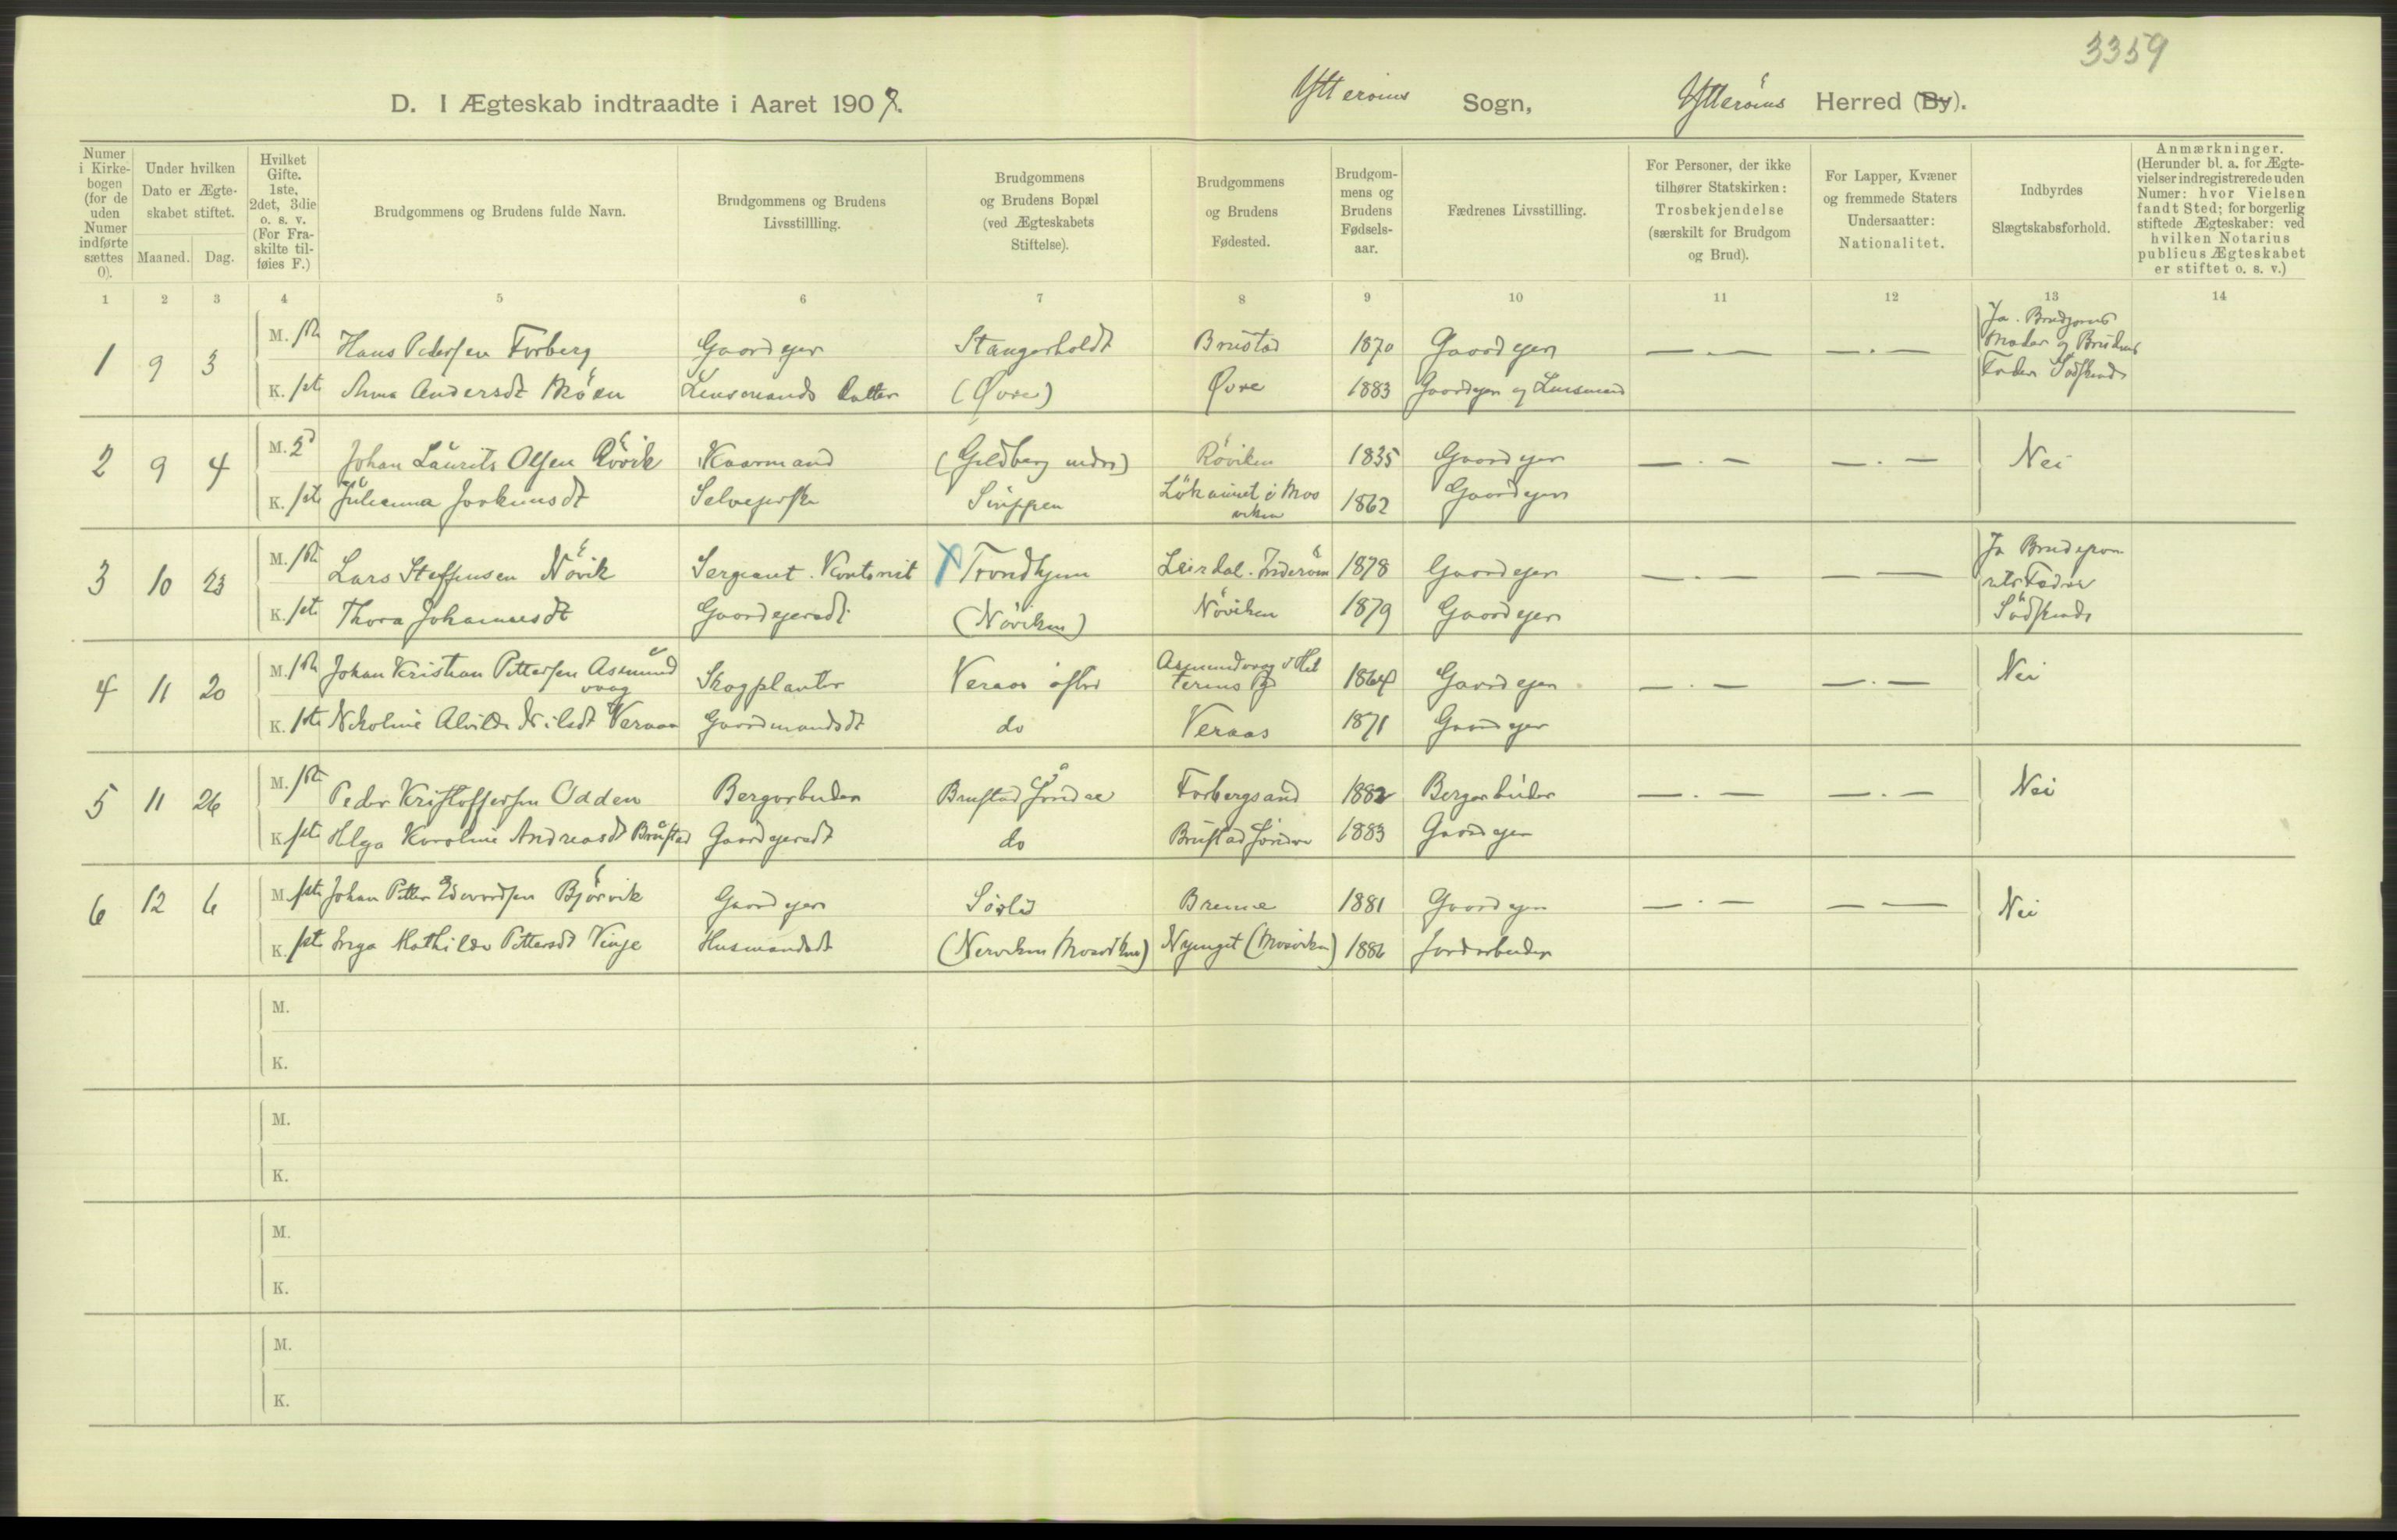 3359
D. I Ægteskab indtraadte i Aaret 1907. Ytterøens Sogn, Ytterøens Herred (By).
Numer i Kirke-bogen (for de uden Numer indførte sættes 0).
Under hvilken Dato er Ægte-skabet stiftet.
Maaned. Dag.
Hvilket Gifte. 1ste, 2det, 3die o. s. v. (For Fra-skilte til-føies F.)
Brudgommens og Brudens fulde Navn.
Brudgommens og Brudens Livsstillling.
Brudgommens og Brudens Bopæl (ved Ægteskabets Stiftelse).
Brudgommens og Brudens Fødested.
Brudgom-mens og Brudens Fødsels-aar.
Fædrenes Livsstilling.
For Personer, der ikke tilhører Statskirken: Trosbekjendelse (særskilt for Brudgom og Brud).
For Lapper, Kvæner og fremmede Staters Undersaatter: Nationalitet.
Indbyrdes Slægtskabsforhold.
Anmærkninger. (Herunder bl. a. for Ægte-vielser indregistrerede uden Numer: hvor Vielsen fandt Sted; for borgerlig stiftede Ægteskaber: ved hvilken Notarius publicus Ægteskabet er stiftet o. s. v.)
1 2 3 4 5 6 7 8 9 10 11 12 13 14
1 9 3 M. 1ste Hans Pedersen Forberg Gaardejer Stangerholdt Brustad 1870 Gaardejer — . — — . — Ja. Brudgoms Moder og Brudens Fader Sødskende
K. 1ste Anna Andersdt Moen Lensmands Datter (Øvre) Øvre 1883 Gaardejer og Lensmand
2 9 4 M. 2d Johan Laurits Olsen Røvik Kaarmand (Geldberg nedre) Røviken 1835 Gaardejer — . — — . — Nei
K. 1ste Julianna Joakimsdt Selvejerske 1862 Gaardejer
3 10 23 M. 1ste Lars Steffensen Nøvik Sergeant. Kontorist X Trondhjem Leirdal. Inderøen 1878 Gaardejer — . — — — Ja Brudeparrets Fædre Sødskende
K. 1ste Thora Johannesdt Gaardejersdt (Nøviken) Nøviken 1879 Gaardejer
4 11 20 M. 1ste Johan Kristian Pettersen Asmundvaag Skogplanter Veraas Asmundvaag i Hitterens Pgd 1864 Gaardejer — . — — . — Nei
K. 1ste Nikoline Alvilde Nilsdt Veraas Gaardmandsdt do Veraas 1871 Gaardejer
5 11 26 M. 1ste Peder Kristoffersen Odden Bergarbeider Brustad søndre Forbergsand 1882 Bergarbeider — . — — . — Nei
K. 1ste Helga Karoline Andreasdt Brustad Gaardejersdt do Brustad søndre 1883 Gaardejer
6 12 6 M. 1ste Johan Petter Edvardsen Bjørvik Gaardejer Sørli Brenne 1881 Gaardejer — . — — — Nei
K. 1ste Inga Mathilde Pettersdt Vinje Husmandsdt (Nerviken Mosviken) Nyenget (Mosviken) 1886 Jordarbeider
M.
K.
M.
K.
M.
K.
M.
K.